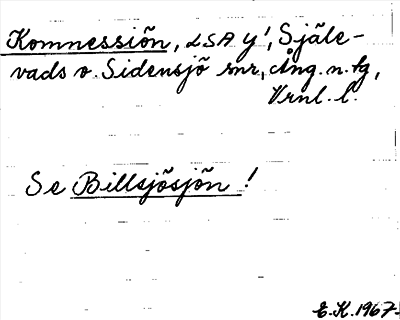 Komnessiön, LSA y!, Själe-
vads o. Sidensjö snr, Ång. n. tg,
Vrnl. l.
Se Billsjösjön!
E.K. 1967.